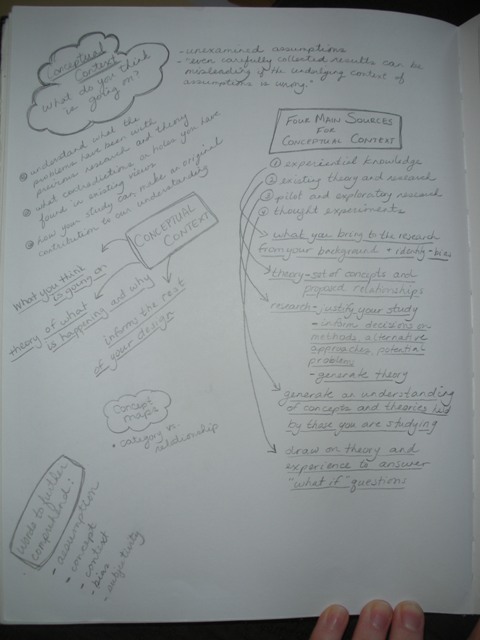 Conceptual
Context
What do you think
is going on?
-unexamined assumptions
-"even carefully collected results can be
misleading if the underlying context of
assumptions is wrong."
① understand what the
problems have been with
previous research and theory
② what contradictions or holes you have
found in existing views
③ how your study can make an original
contribution to our understanding
CONCEPTUAL
CONTEXT
What you think
is going on
theory of what
is happening and why
informs the rest
of your design
Concept
maps
• category vs.
relationship
words to further
comprehend:
- assumption
- concept
- context
- bias
- subjectivity
FOUR MAIN SOURCES
FOR
CONCEPTUAL CONTEXT
① experiential knowledge
② existing theory and research
③ pilot and exploratory research
④ thought experiments
what you bring to the research
from your background + identity - bias
theory - set of concepts and
proposed relationships
research - justify your study
- inform decisions on
methods, alternative
approaches, potential
problems
- generate theory
generate an understanding
of concepts and theories held
by those you are studying
draw on theory and
experience to answer
"what if" questions